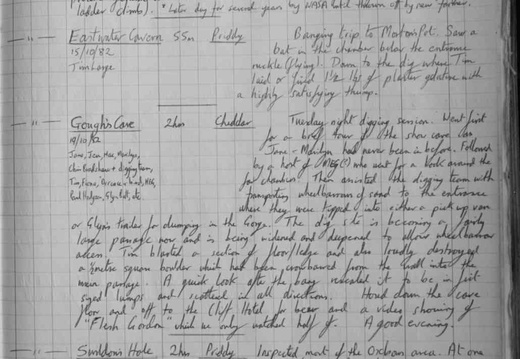 ladder climb). * Later day for several years by
Eastwater Cavern 55m Priddy Banging trip to Morton's Pot. Saw a
15/10/82 bat in the chamber below the entrance
Tim Large ruckle (flying). Down to the dig where Tim
laid or fired 1½ lbs of plaster gelatine with
a highly satisfying thump.
Gough's Cave 2hrs Cheddar Tuesday night digging session. Went first
19/10/82 for a brief tour of the show cave as
Jane, Jen, Marilyn, Jane + Marilyn had never been in before. Followed
Chris Bradshaw + digging team, by a host of who went for a look around the
Tim, Fiona, for chandlier. Then assisted the digging team with
Paul Hodgson, Glyn, etc. transporting wheelbarrows of sand to the entrance
where they were tipped into either a pick up van
or Glyn's trailer for dumping in the Gorge. The dig site is becoming a fairly
large passage now and is being widened and deepened to allow wheelbarrow
access. Tim blasted a section of floor/ledge and also loudly destroyed
a metre square boulder which had been crowbarred from the wall into the
main passage. A quick look after the bang revealed it to be in fist
sized lumps and scattered in all directions. Hosed down the cave
floor and off to the Cliff Hotel for beer and a video showing of
"Flesh Gordon" which we only watched half of. A good evening.
Swildon's Hole 2hrs Priddy Inspected most of the area. At one